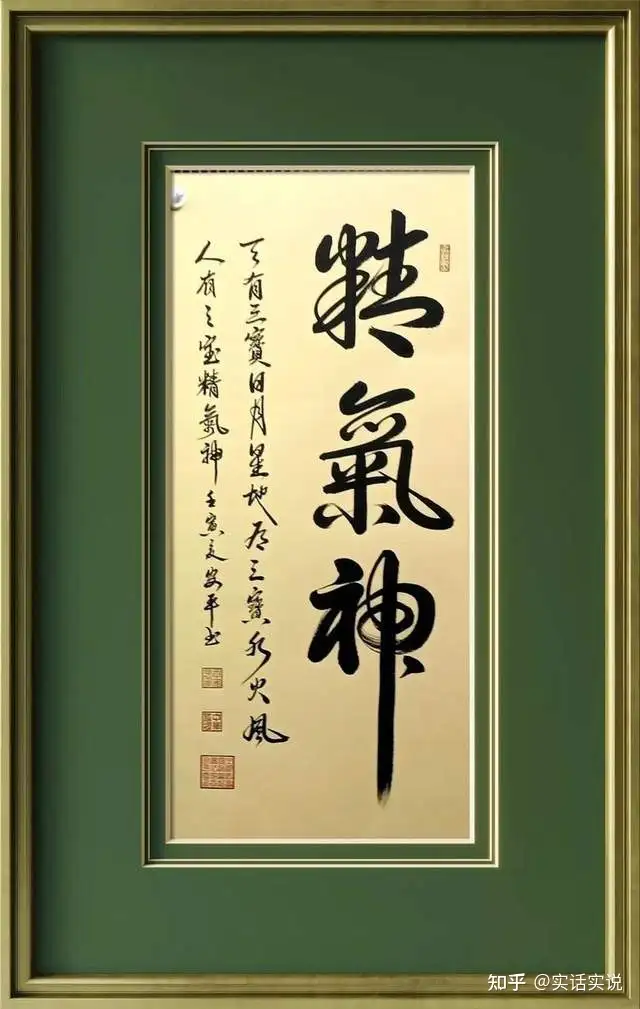 精氣神
天有三寶日月星地有三寶水火風
人有三寶精氣神 壬寅夏安平书
知乎 @实话实说